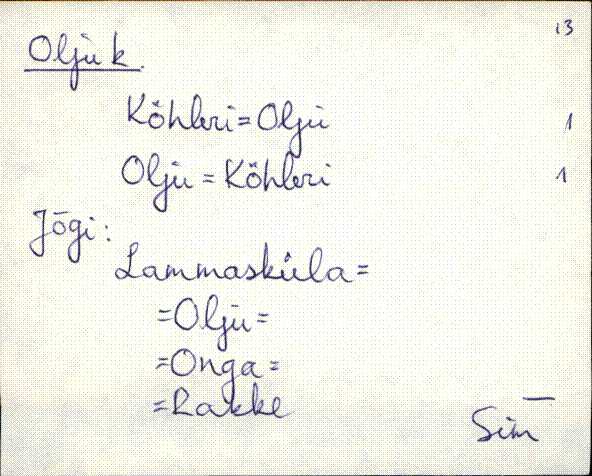 13
Oljü k.
Köhleri=Oljü 1
Olju = Köhleri 1
Jõgi:
Lammasküla=
=Oljü=
=Onga=
=Rakke
Sim